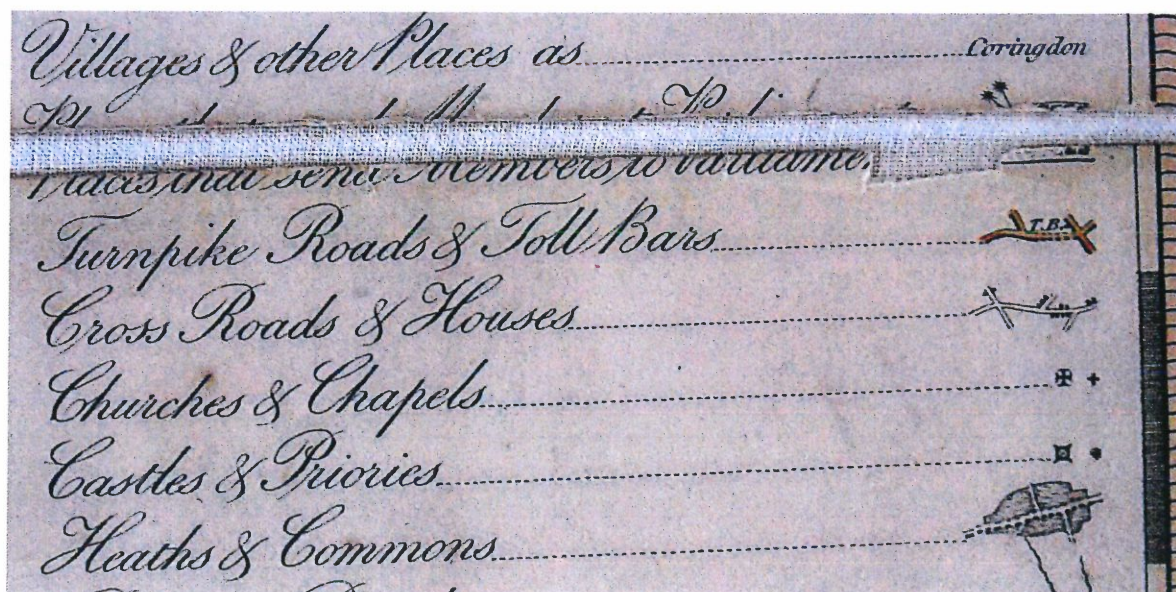 Villages & other Places as Coringdon
Places that send Members to Parliame
Turnpike Roads & Toll Bars T.B.
Cross Roads & Houses
Churches & Chapels
Castles & Priories
Heaths & Commons